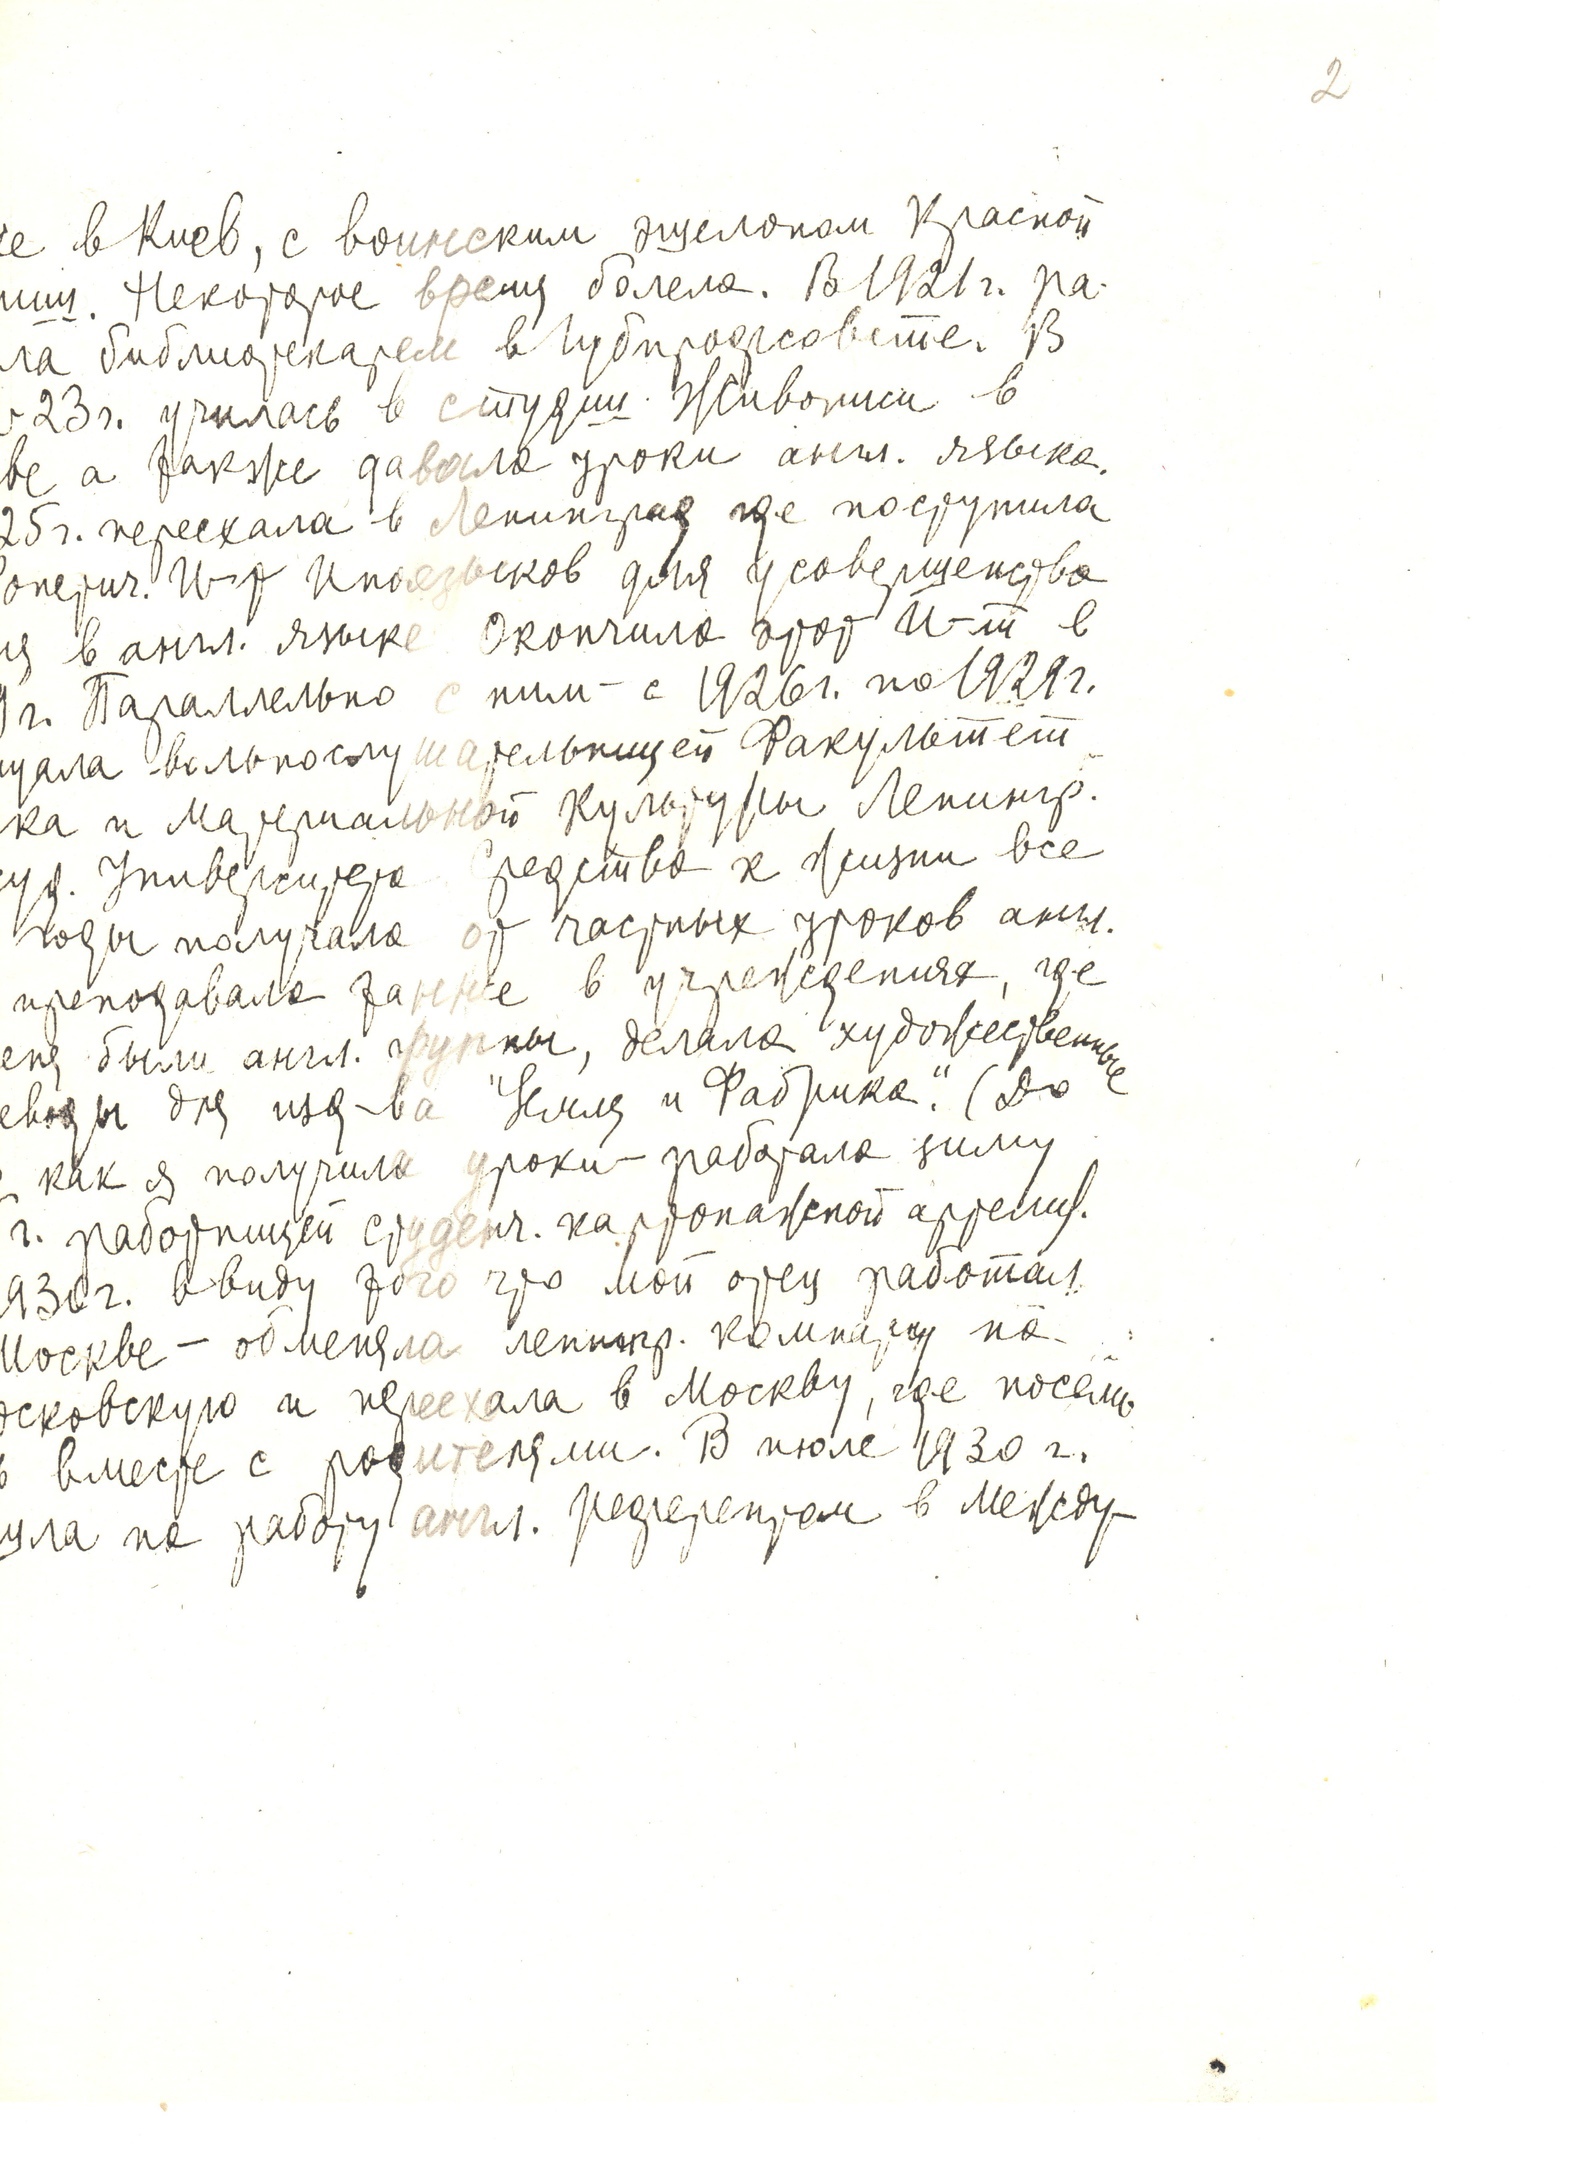 2
же в Киев, с воинским эшелоном Красной
мии. Некоторое время болела. В 1921 г. ра-
ла библиотекарем в Губпрофсовете. В
23 г. училась в студии Живописи в
ве а также давала уроки англ. языка.
25 г. переехала в Ленинград где поступила
И-т Иноязыков для усовершенство
ия в англ. языке Окончила этот И-т в
9 г. Параллельно с ним – с 1926 г. по 1929 г.
щала вольнослушательницей Факультет
ка и Материальной Культуры Ленингр.
суд. Университета Средства к жизни все
годы получала от частных уроков англ.
преподавала также в учреждениях, где
ена были англ. группы, делала художественные
еводы для изд-ва "Земля и Фабрика". (До
как я получила уроки – работала зиму
г. работницей студенч. картонажной артели).
930 г. ввиду того что мой отец работал
Москве – обменяла ленингр. комнату на
осковскую и переехала в Москву, где посели
ь вместе с родителями. В июле 1930 г.
ила на работу англ. референтом в Между-